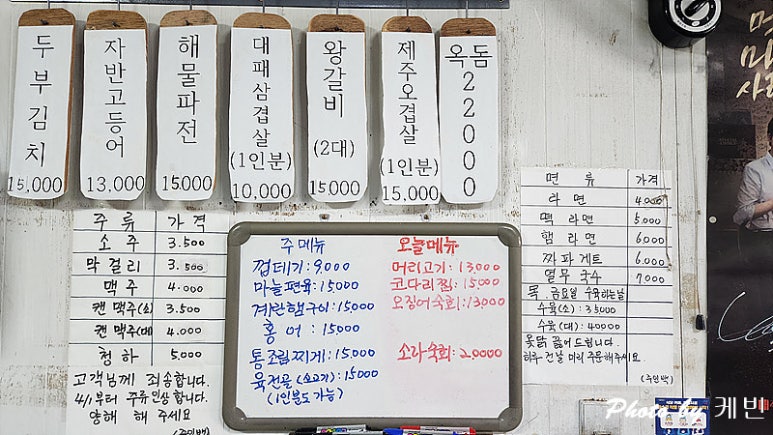 두부김치
15,000
자반고등어
13,000
해물파전
15.000
대패삼겹살
(1인분)
10,000
왕갈비
(2대)
15000
제주오겹살
(1인분)
15,000
옥돔
22000
주류 가격
소주 3.500
막걸리 3.500
맥주 4.000
캔맥주(소) 3.500
캔맥주(대) 4.000
청하 5,000
고객님께 죄송합니다.
4/1부터 주류인상합니다.
양해 해 주세요
(주인백)
주 메뉴
껍데기: 9,000
마늘편육: 15000
계란햄구이: 15,000
홍어: 15000
통조림찌게: 15,000
육전골(소고기): 15000
(1인분도 가능)
오늘메뉴
머리고기: 13,000
코다리찜: 15,000
오징어숙회: 13000
소라숙회: 20,000
면류 가격
라면 4,000
떡라면 5.000
햄라면 6000
짜파게트 6.000
열무국수 7000
목.금요일 수육하는날
수육(소): 35000
수육(대): 40000
옻닭 끓여드립니다.
하루 전날 미리 주문해주세요.
(주인백)
Photo by 케빈